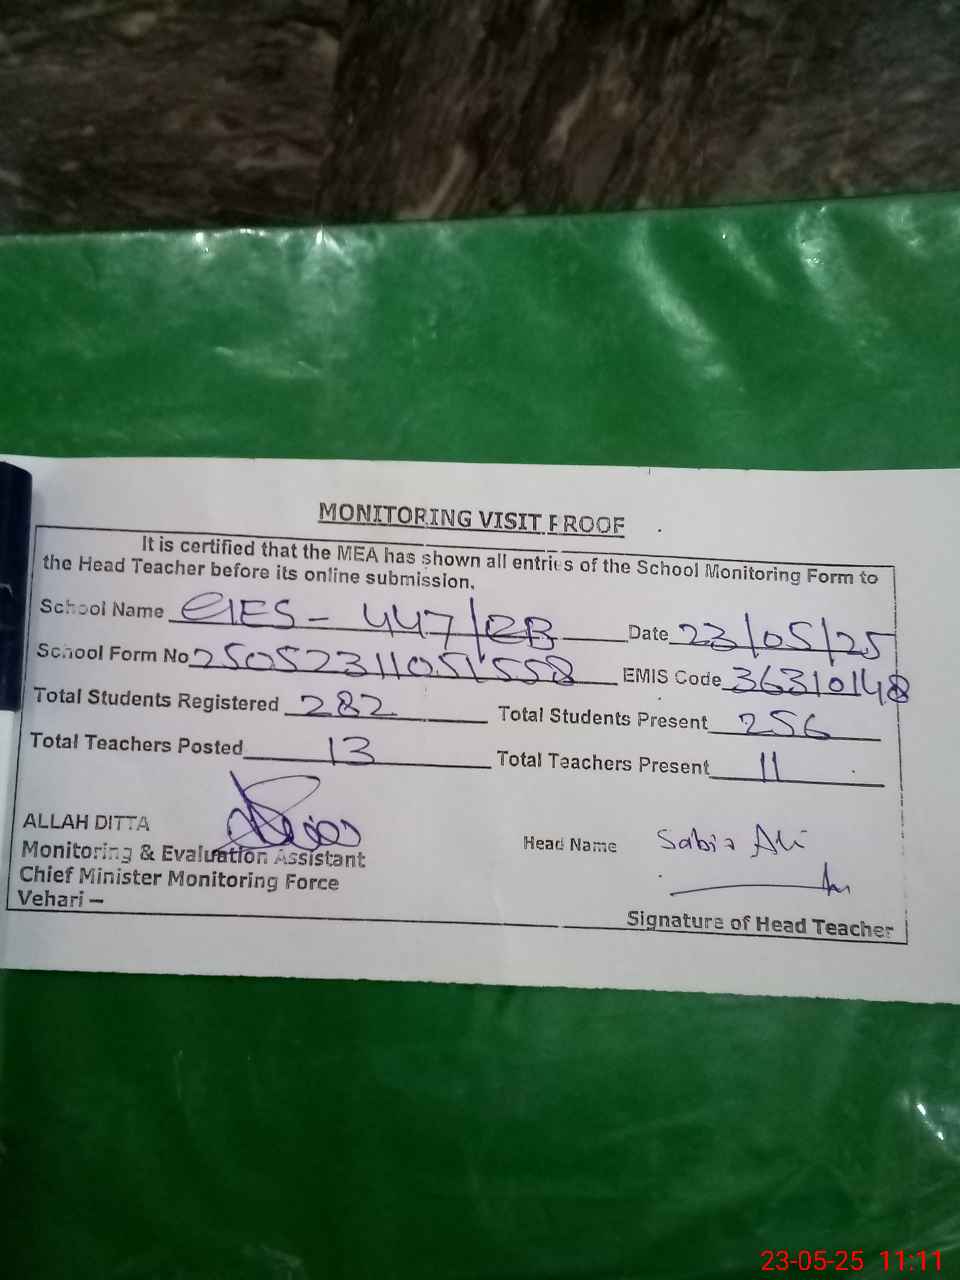 MONITORING VISIT PROOF
It is certified that the MEA has shown all entries of the School Monitoring Form to
the Head Teacher before its online submission.
School Name GES - 447/EB Date 23/05/25
School Form No 25052311051558 EMIS Code 36310148
Total Students Registered 282 Total Students Present 256
Total Teachers Posted 13 Total Teachers Present 11
ALLAH DITTA
Monitoring & Evaluation Assistant Head Name Sabir Ali
Chief Minister Monitoring Force
Vehari –
Signature of Head Teacher
23-05-25 11:11